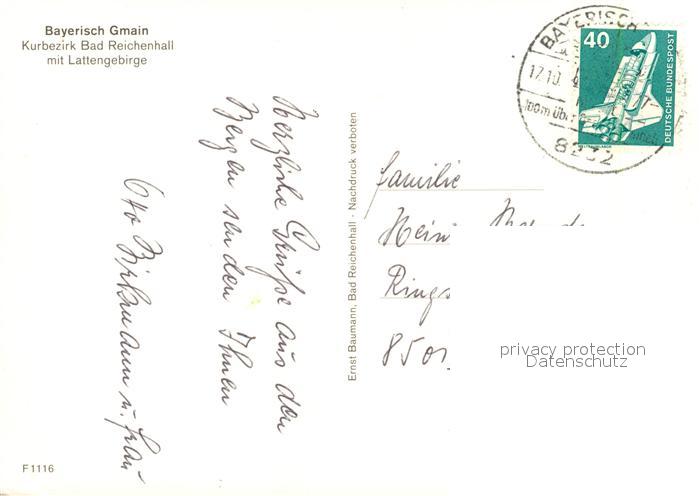 Bayerisch Gmain
Kurbezirk Bad Reichenhall
mit Lattengebirge
Herzliche Grüße aus den
Bergen senden Ihnen
Otto Birkmann u. Frau
F 1116
Ernst Baumann, Bad Reichenhall - Nachdruck verboten
BAYERISCH
17.10.
8232
40
DEUTSCHE BUNDESPOST
Familie
Hein
Rings
850
privacy protection
Datenschutz